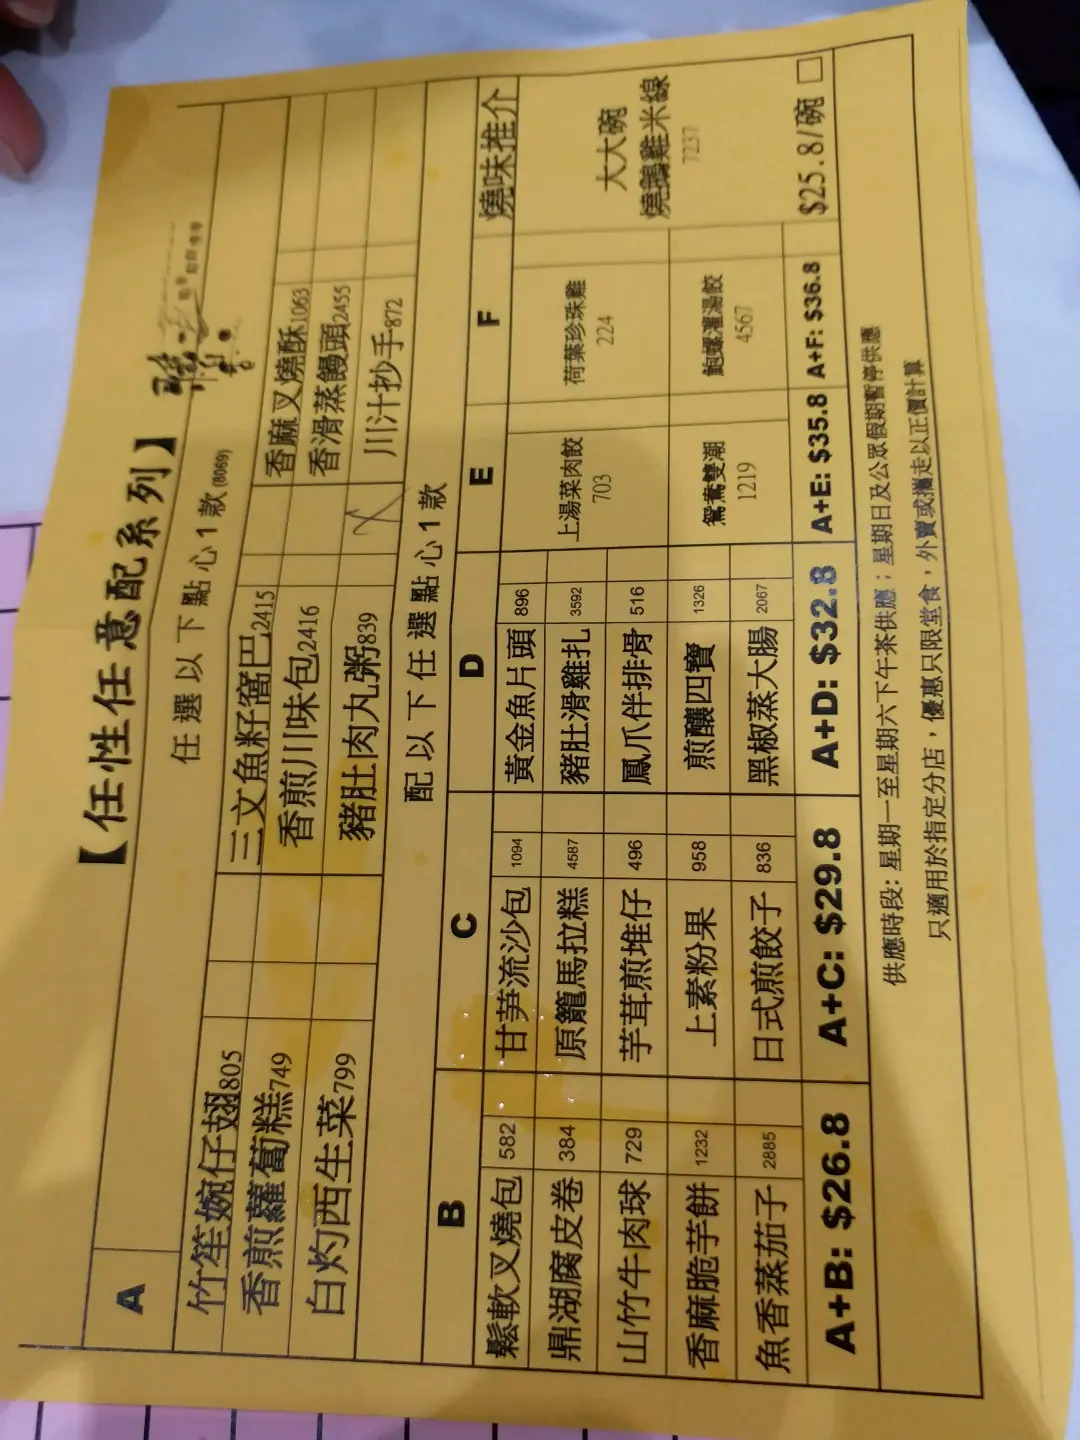 【任性任意配系列】
A
任選以下點心1款(8069)
竹笙婉仔翅805
三文魚籽窩巴2415
香麻叉燒酥1063
香煎蘿蔔糕749
香煎川味包2416
香滑蒸饅頭2455
白灼西生菜799
豬肚肉丸粥839
川汁抄手872
配以下任選點心1款
B
C
D
E
F
燒味推介
鬆軟叉燒包 582
甘荀流沙包 1094
黃金魚片頭 896
上湯菜肉餃
703
荷葉珍珠雞
224
大大碗
燒鵝雞米線
7237
鼎湖腐皮卷 384
原籠馬拉糕 4587
豬肚滑雞扎 3592
山竹牛肉球 729
芋茸煎堆仔 496
鳳爪伴排骨 516
香麻脆芋餅 1232
上素粉果 958
煎釀四寶 1326
鴛鴦雙潮
1219
鮑螺灌湯餃
4567
魚香蒸茄子 2885
日式煎餃子 836
黑椒蒸大腸 2067
A+B: $26.8
A+C: $29.8
A+D: $32.8
A+E: $35.8
A+F: $36.8
$25.8/碗 □
供應時段: 星期一至星期六下午茶供應；星期日及公眾假期暫停供應
只適用於指定分店，優惠只限堂食，外賣或攜走以正價計算